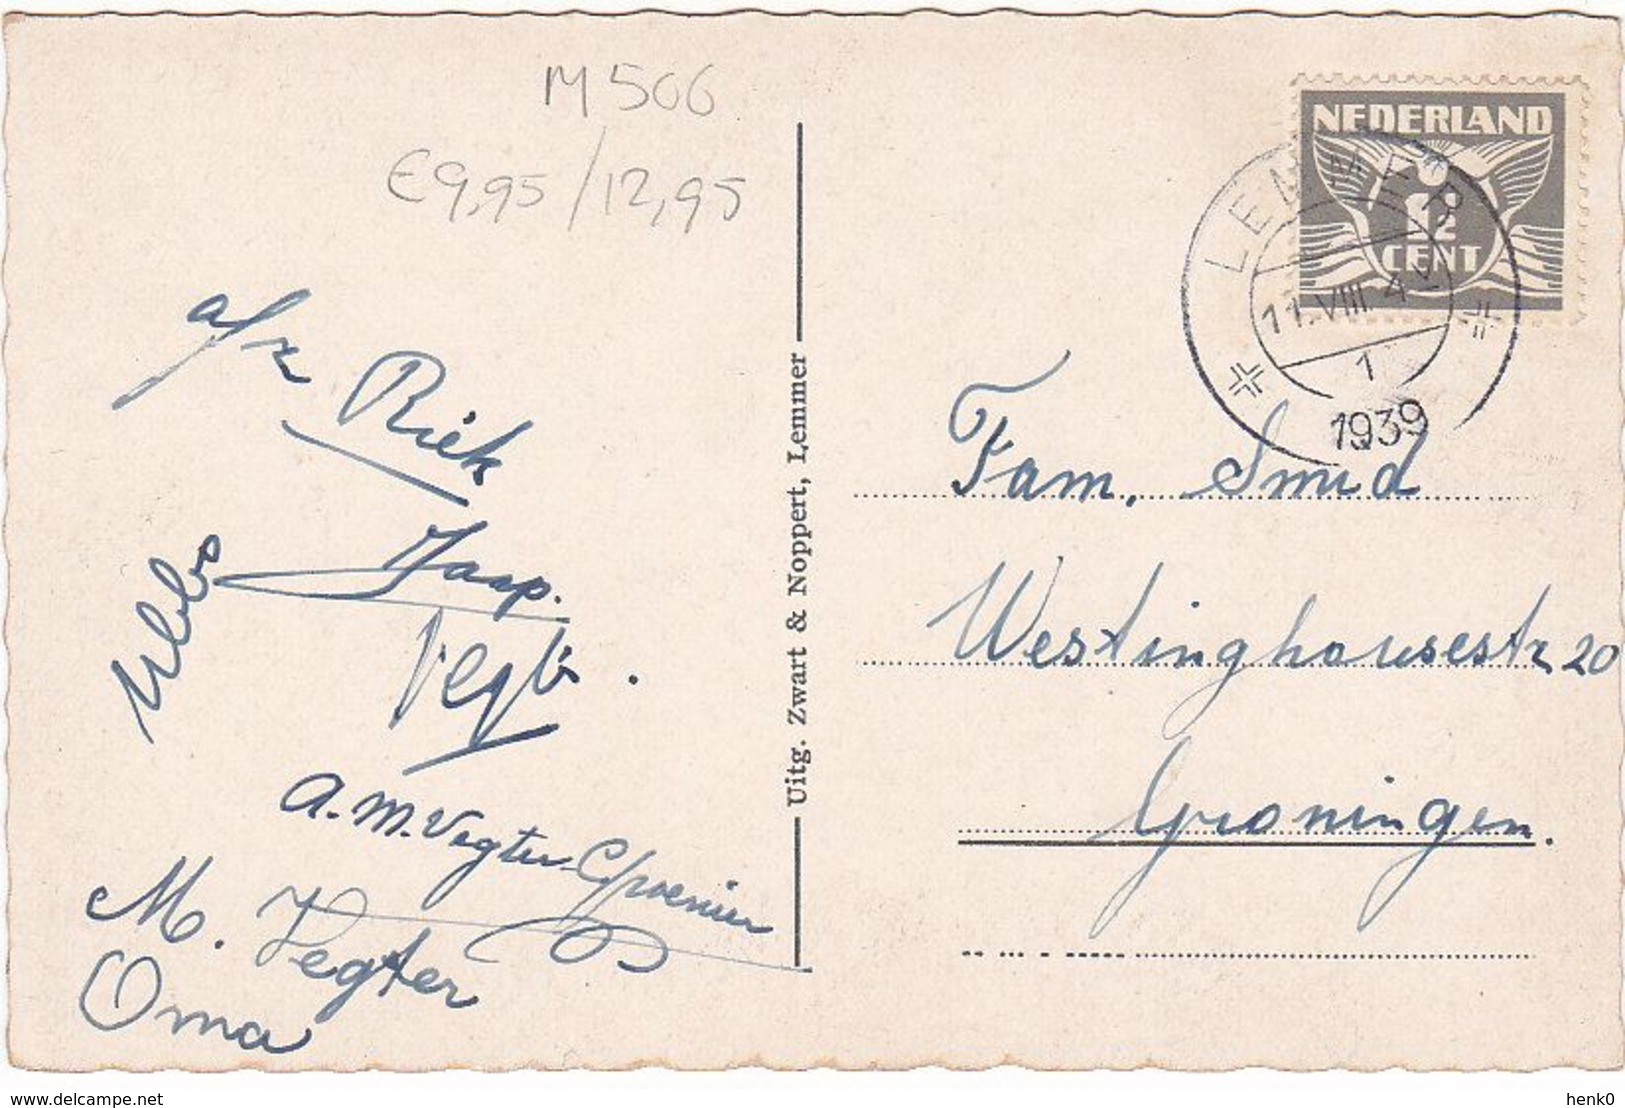 M 506
€9,95/12,95
afz Riek
Jaap.
Ubbo
A.M. Vegter-Groenier
M. Vegter
Oma
Uitg. Zwart & Noppert, Lemmer
NEDERLAND
1½
CENT
LEMMER
11.VIII. 4 V
1
1939
Fam. Smid
Westinghousestr 20
Groningen.
www.delcampe.net
henk0